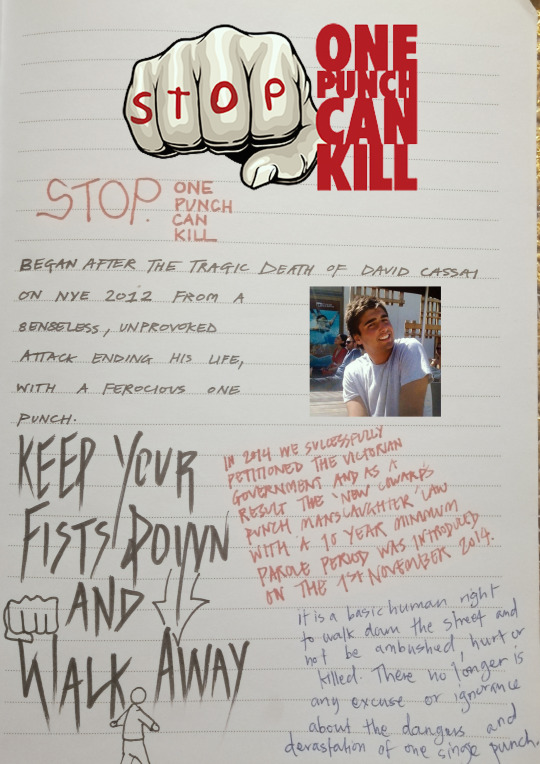 STOP
ONE
PUNCH
CAN
KILL
STOP.
ONE
PUNCH
CAN
KILL
BEGAN AFTER THE TRAGIC DEATH OF DAVID CASSAI
ON NYE 2012 FROM A
SENSELESS, UNPROVOKED
ATTACK ENDING HIS LIFE,
WITH A FEROCIOUS ONE
PUNCH.
KEEP YOUR
FISTS DOWN
AND
WALK AWAY
IN 2014 WE SUCCESSFULLY
PETITIONED THE VICTORIAN
GOVERNMENT AND AS A
RESULT THE 'NEW COWARDS
PUNCH MANSLAUGHTER' LAW
WITH A 10 YEAR MINIMUM
PAROLE PERIOD WAS INTRODUCED
ON THE 1ST NOVEMBER 2014.
it is a basic human right
to walk down the street and
not be ambushed, hurt or
killed. There no longer is
any excuse or ignorance
about the dangers and
devastation of one singe punch.